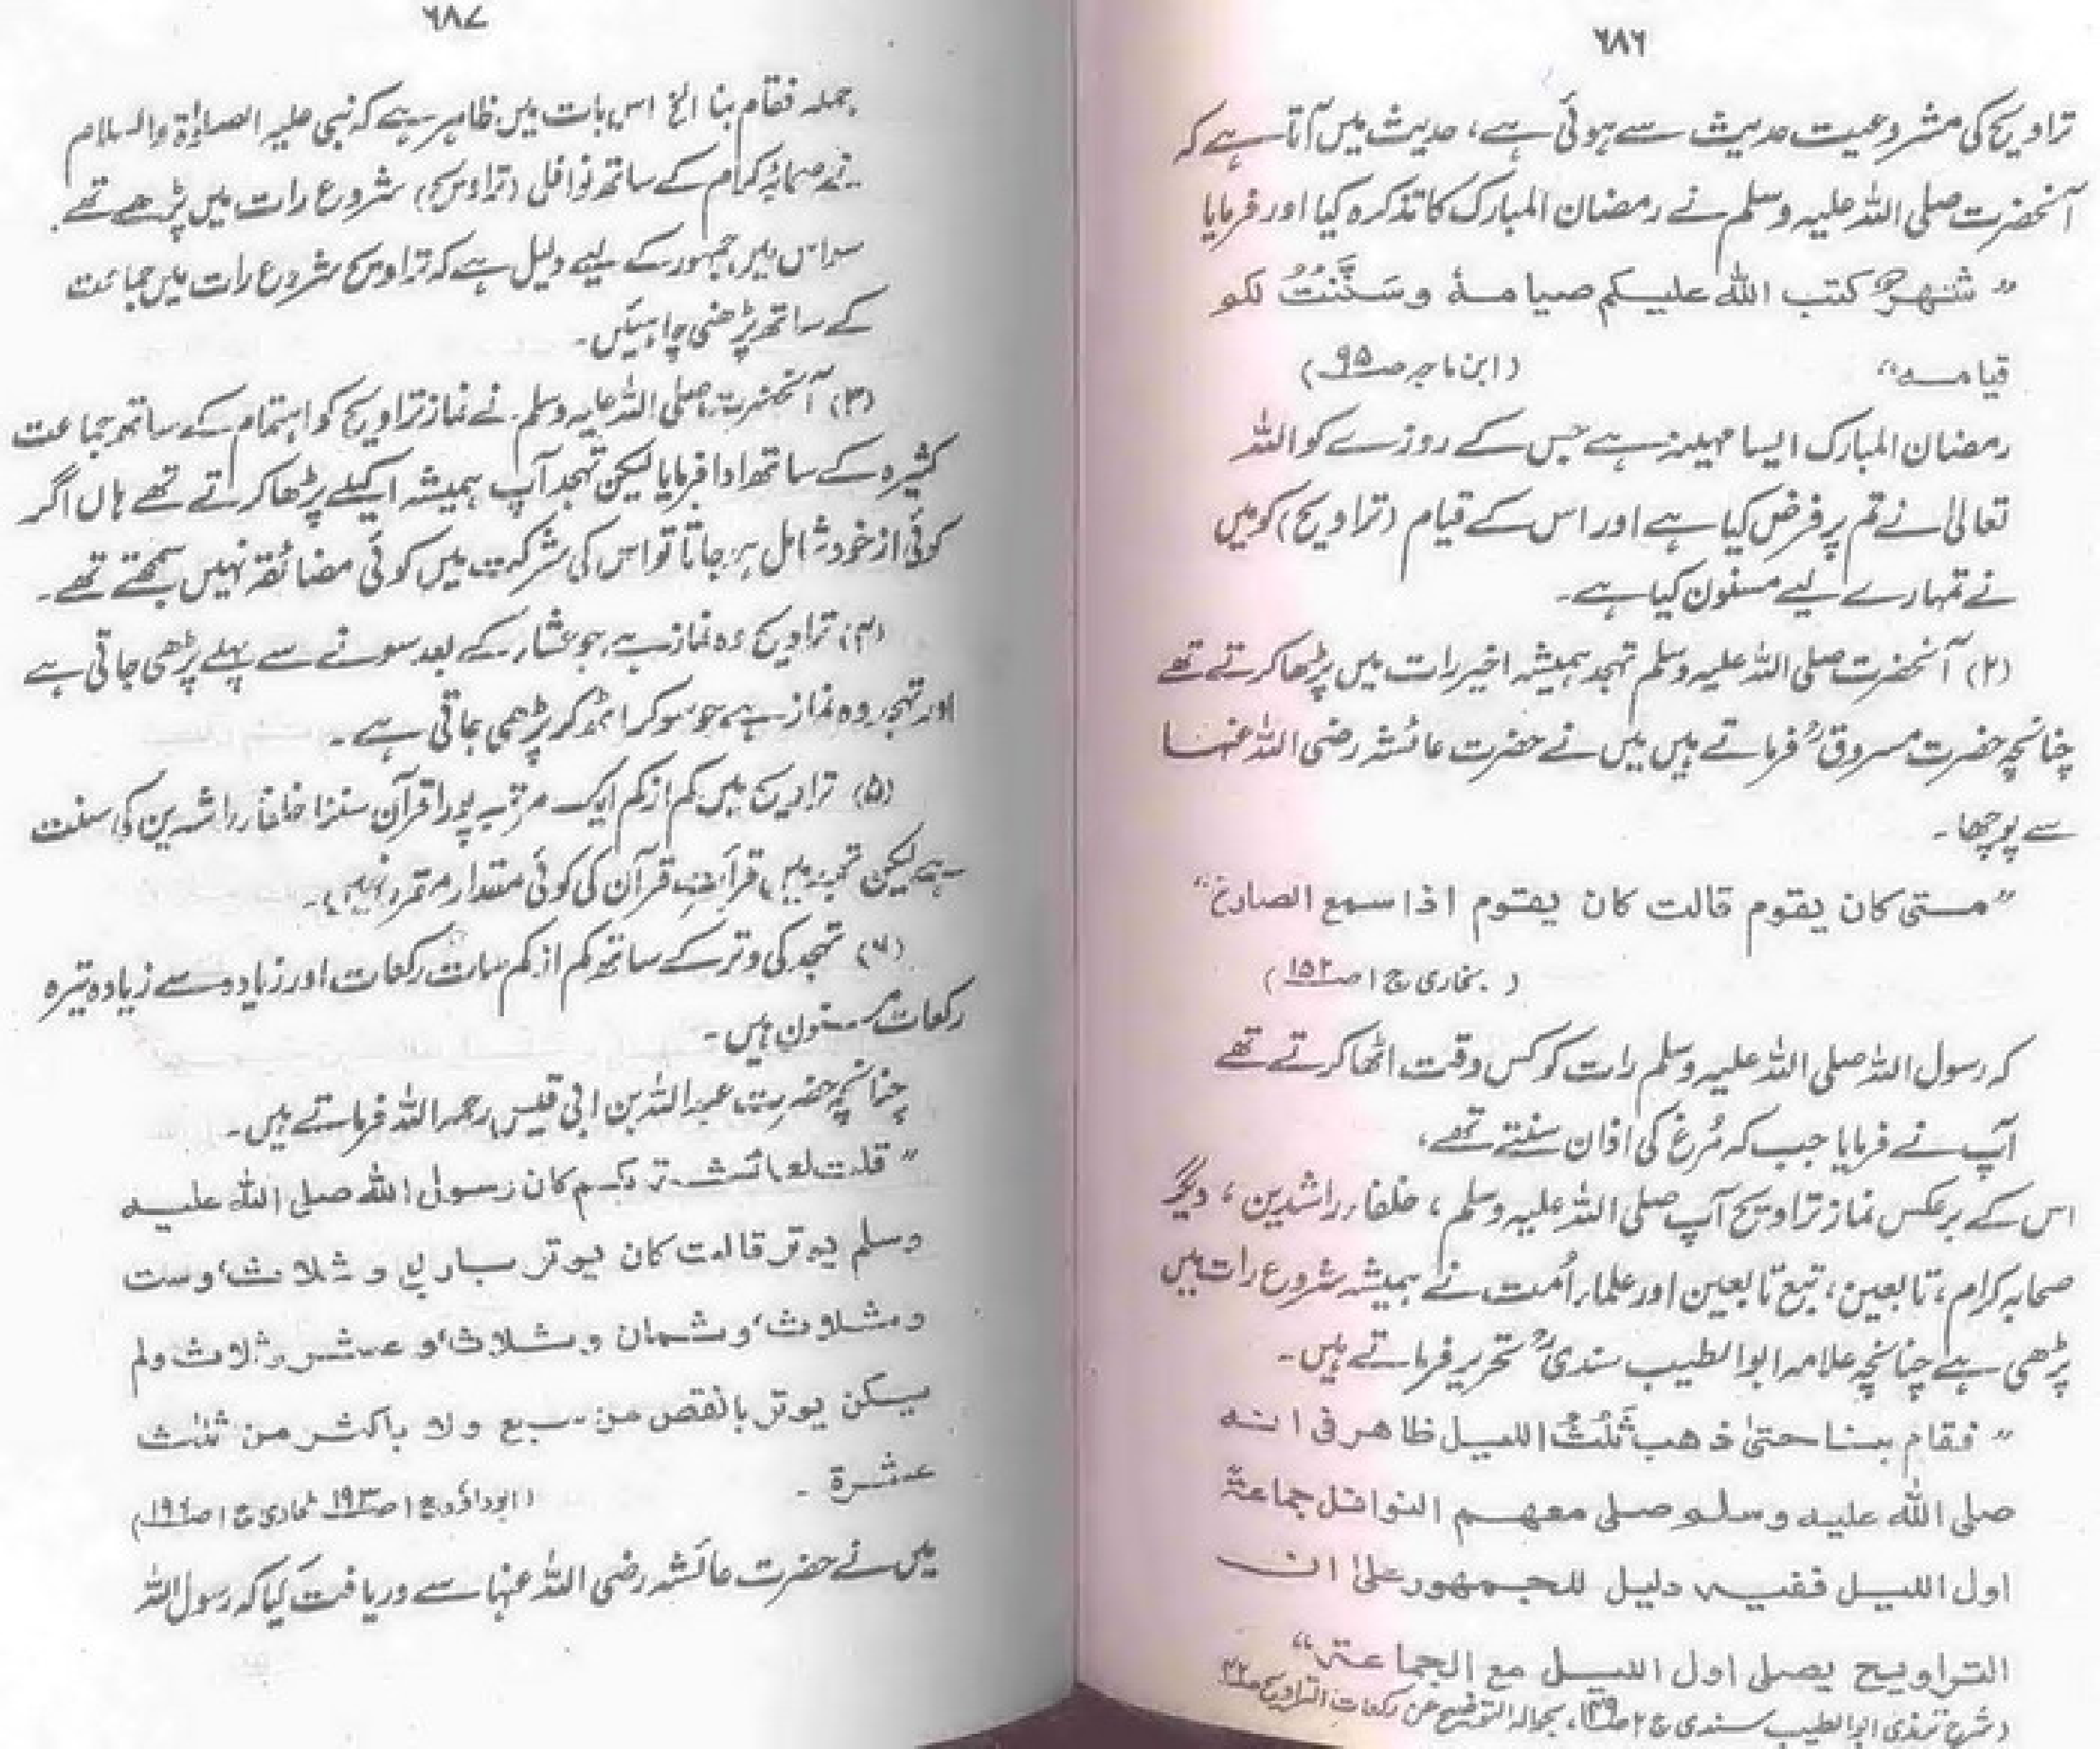 ٦٨٦
تراویح کی مشروعیت حدیث سے ہوئی ہے، حدیث میں آتا ہے کہ
آنحضرت صلی اللہ علیہ وسلم نے رمضان المبارک کا تذکرہ کیا اور فرمایا
” شهر كتب الله عليكم صيامه وسَنَنْتُ لكو
قيامه“ (ابن ماجہ صـ۹۵)
رمضان المبارک ایسا مہینہ ہے جس کے روزے کو اللہ
تعالیٰ نے تم پر فرض کیا ہے اور اس کے قیام (تراویح) کو میں
نے تمہارے لیے مسنون کیا ہے۔
(۲) آنحضرت صلی اللہ علیہ وسلم تہجد ہمیشہ اخیر رات میں پڑھا کرتے تھے
چنانچہ حضرت مسروقؒ فرماتے ہیں میں نے حضرت عائشہ رضی اللہ عنہا
سے پوچھا۔
”متى كان يقوم قالت كان يقوم اذا سمع الصارخ“
(بخاری ج ۱ صـ۱۵۲)
کہ رسول اللہ صلی اللہ علیہ وسلم رات کو کس وقت اٹھا کرتے تھے
آپ نے فرمایا جب کہ مُرغ کی اذان سنتے تھے،
اس کے برعکس نماز تراویح آپ صلی اللہ علیہ وسلم، خلفاء راشدین، دیگر
صحابہ کرام، تابعین، تبع تابعین اور علماء اُمت نے ہمیشہ شروع رات میں
پڑھی ہے چنانچہ علامہ ابوالطیب سندیؒ تحریر فرماتے ہیں۔
” فقام بنا حتىٰ ذهب ثُلُثُ الليل ظاهر فى انه
صلى الله عليه وسلو صلى معهم النوافل جماعة
اول الليل ففيه دليل للجمهور علىٰ ان
التراويح يصلى اول الليل مع الجماعة“
(شرح ترمذی ابوالطیب سندی ج ۲ صـ۳۹، بحوالہ التوضیح عن رکعات التراویح صـ۳۲
٦٨٧
جملہ فقام بنا الخ اس بات میں ظاہر ہے کہ نبی علیہ الصلوٰۃ والسلام
نے صحابہ کرام کے ساتھ نوافل (تراویح) شروع رات میں پڑھے تھے۔
سو اس میں جمہور کے لیے دلیل ہے کہ تراویح شروع رات میں جماعت
کے ساتھ پڑھنی چاہییں۔
(۳) آنحضرت صلی اللہ علیہ وسلم نے نماز تراویح کو اہتمام کے ساتھ جماعت
کثیرہ کے ساتھ ادا فرمایا لیکن تہجد آپ ہمیشہ اکیلے پڑھا کرتے تھے ہاں اگر
کوئی از خود شامل ہو جاتا تو اس کی شرکت میں کوئی مضائقہ نہیں سمجھتے تھے۔
(۴) تراویح وہ نماز ہے جو عشاء کے بعد سونے سے پہلے پڑھی جاتی ہے
اور تہجد وہ نماز ہے جو سو کر اٹھ کر پڑھی جاتی ہے۔
(۵) تراویح میں کم از کم ایک مرتبہ پورا قرآن سننا خلفاء راشدین کی سنت
ہے لیکن تہجد میں قرأت قرآن کی کوئی مقدار مقرر نہیں۔
(۶) تہجد کی وتر کے ساتھ کم از کم سات رکعات اور زیادہ سے زیادہ تیرہ
رکعات مسنون ہیں۔
چنانچہ حضرت عبداللہ بن ابی قیس رحمہ اللہ فرماتے ہیں۔
” قلت لعائشة بكم كان رسول الله صلى الله عليه
وسلم يوتر قالت كان يوتر باربع وثلاث، وست
وثلاث، وثمان وثلاث، وعشر وثلاث ولم
يكن يوتر بانقص من سبع ولا باكثر من ثلث
عشرة - (ابوداؤد ج ۱ صـ۱۹۳ طحاوی ج ۱ صـ۱۹۶)
میں نے حضرت عائشہ رضی اللہ عنہا سے دریافت کیا کہ رسول اللہ